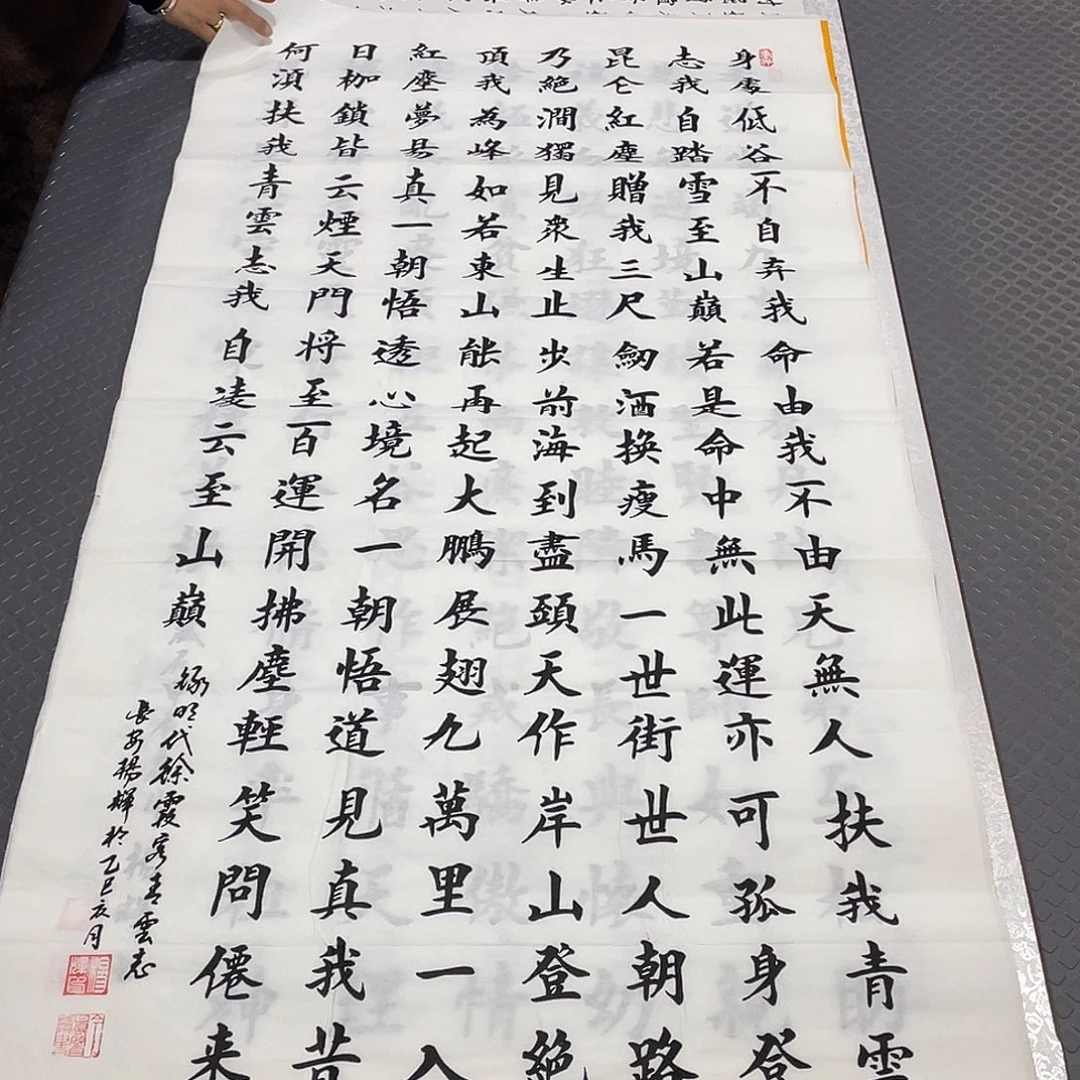 身處低谷不自弃我命由我不由天無人扶我青雲
志我自踏雪至山巔若是命中無此運亦可孤身登
昆仑紅塵贈我三尺劒酒換瘦馬一世街世人朝路
乃絕澗獨見衆生止步前海到盡頭天作岸山登絕
頂我為峰如若東山能再起大鵬展翅九萬里一入
紅塵夢易真一朝悟透心境名一朝悟道見真我昔
日枷鎖皆云煙天門将至百運開拂塵輕笑問僊来
何湏扶我青雲志我自凌云至山巔
錄明代徐霞客青雲志
長安楊輝於乙巳亥月